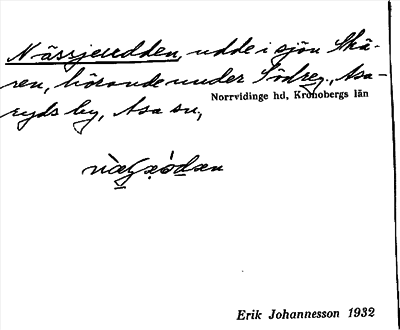 Nässjeudden, udde i sjön Skä-
ren, hörande under Södreg., Asa-
ryds by, Asa sn,
Norrvidinge hd, Kronobergs län
Erik Johannesson 1932